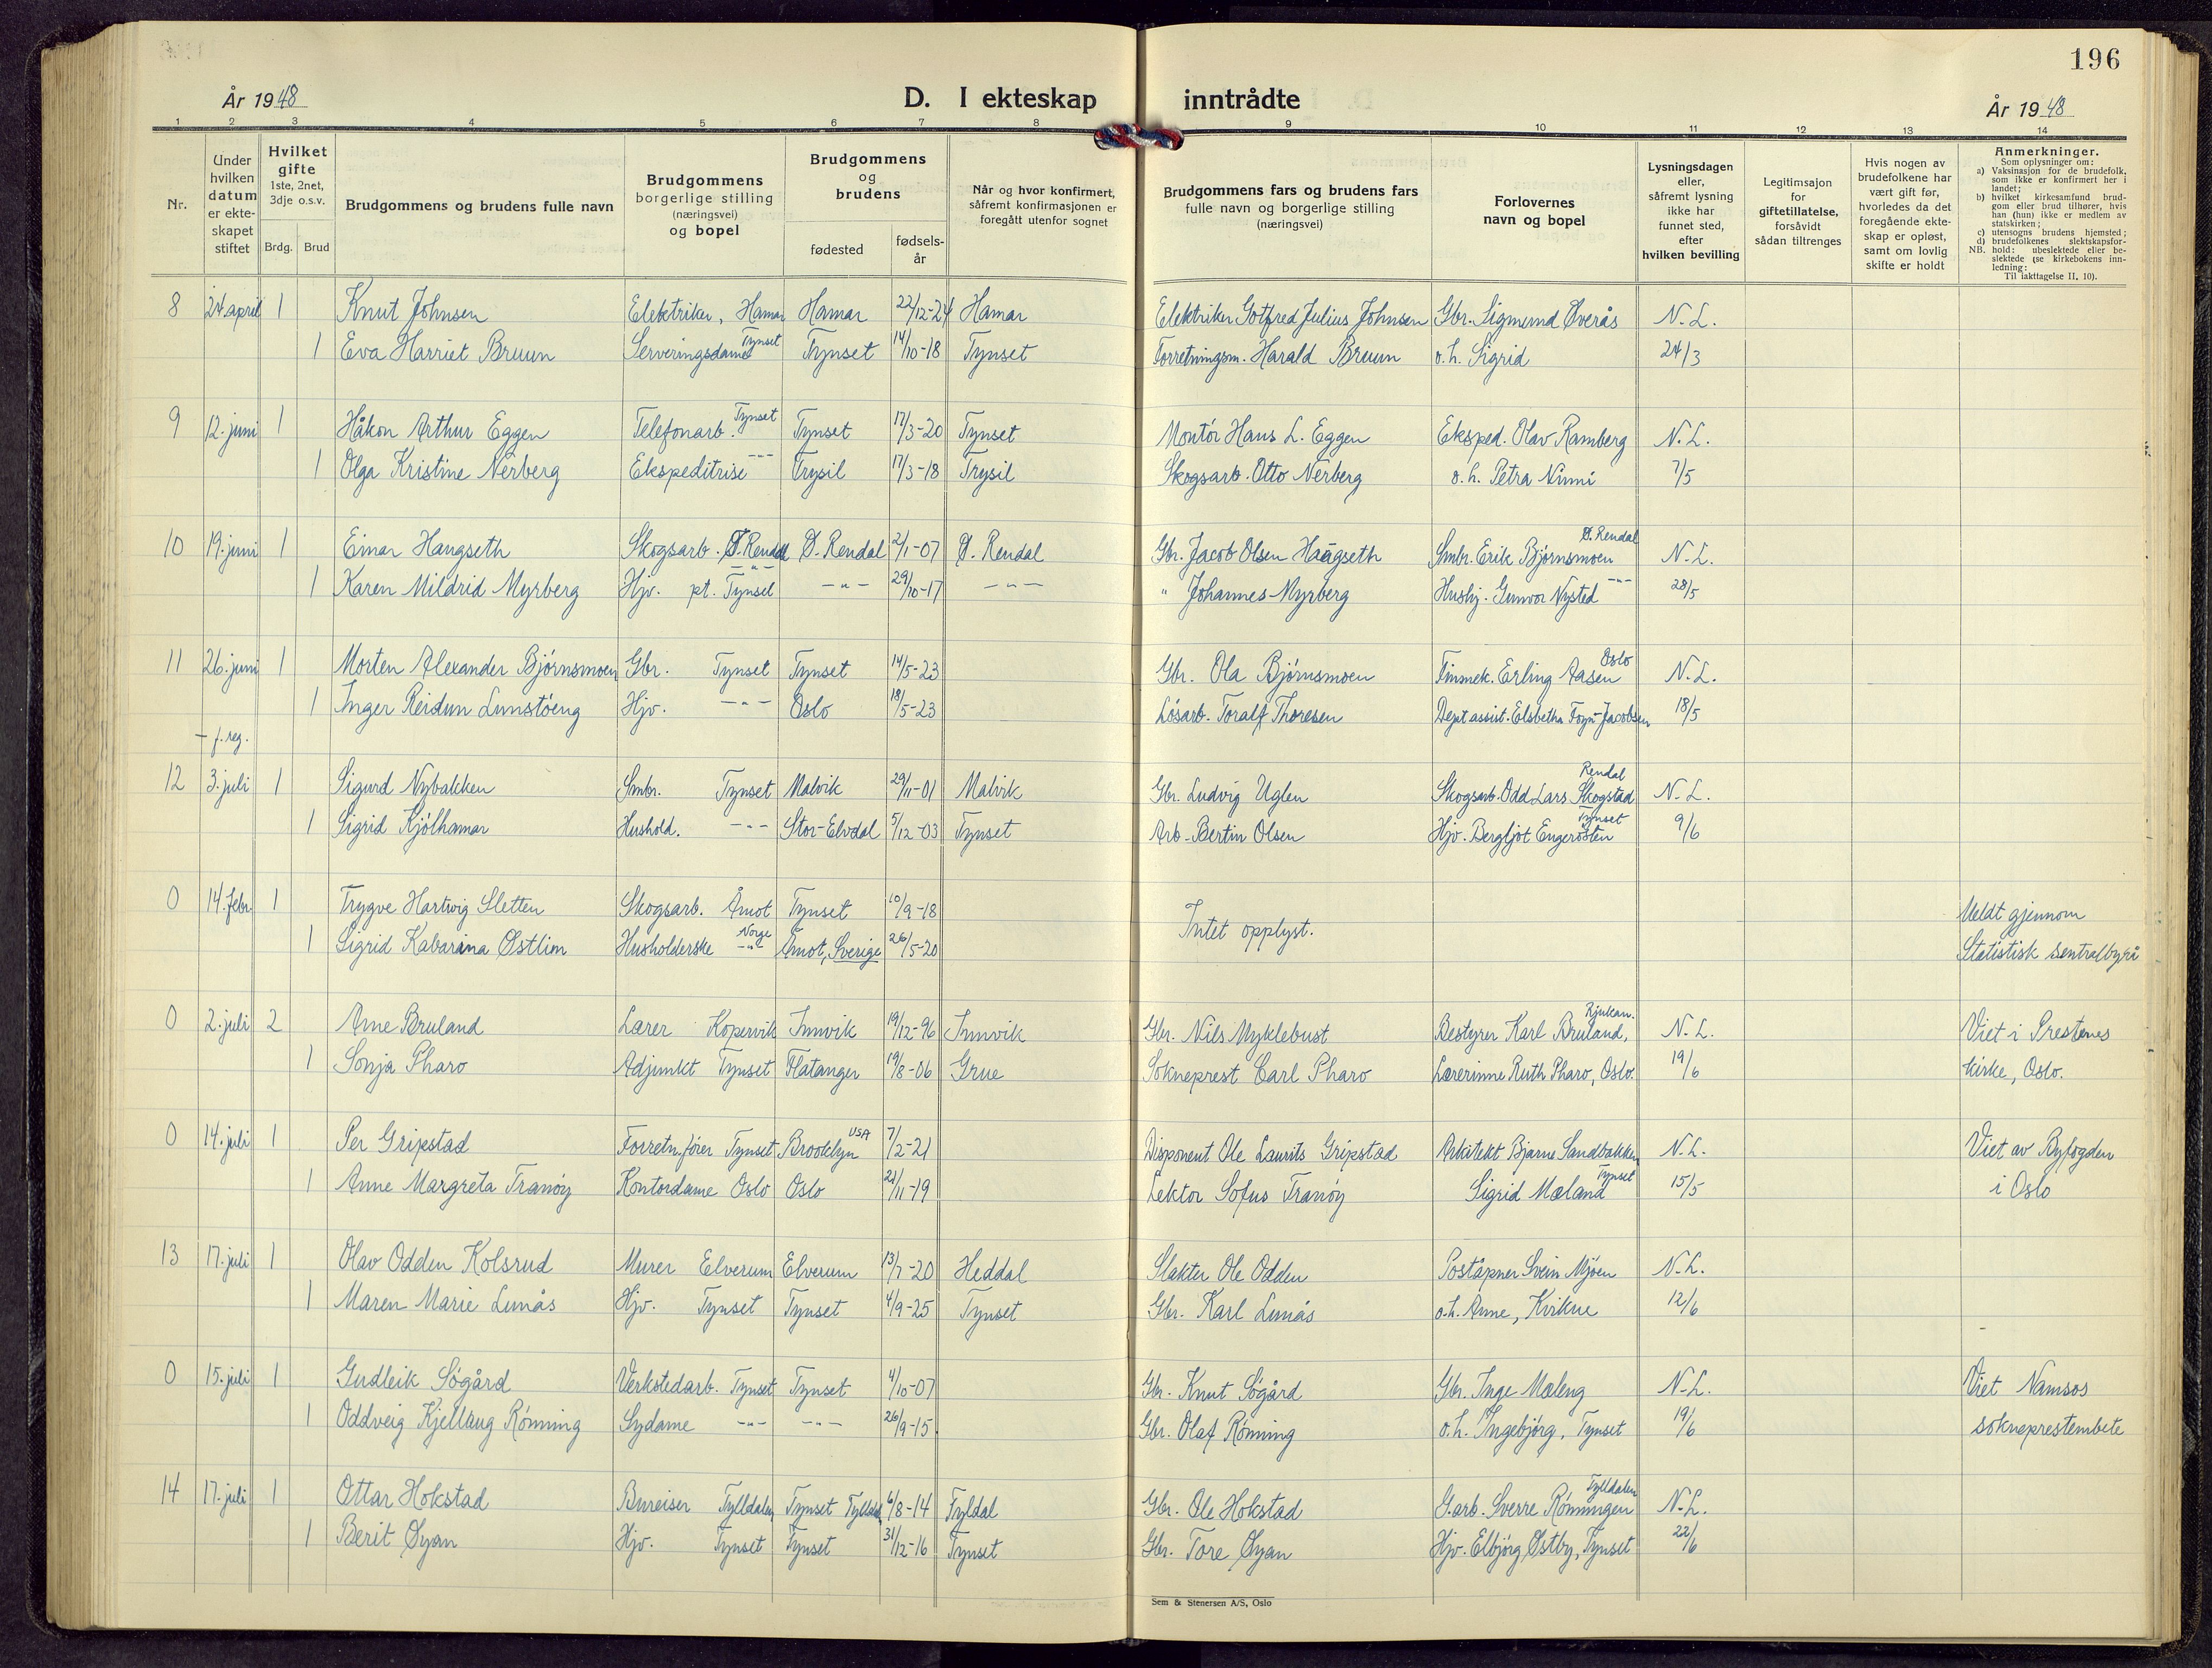 196
År 1948
D. I ekteskap inntrådte
År 1948
1 2 3 4 5 6 7 8 9 10 11 12 13 14
Nr.
Under hvilken datum er ekte-skapet stiftet
Hvilket gifte 1ste, 2net, 3dje o.s.v.
Brdg. Brud
Brudgommens og brudens fulle navn
Brudgommens borgerlige stilling (næringsvei) og bopel
Brudgommens og brudens
fødested
fødsels-år
Når og hvor konfirmert, såfremt konfirmasjonen er foregått utenfor sognet
Brudgommens fars og brudens fars fulle navn og borgerlige stilling (næringsvei)
Forlovernes navn og bopel
Lysningsdagen eller, såfremt lysning ikke har funnet sted, efter hvilken bevilling
Legitimsajon for giftetillatelse, forsåvidt sådan tiltrenges
Hvis nogen av brudefolkene har vært gift før, hvorledes da det foregående ekte-skap er opløst, samt om lovlig skifte er holdt
Anmerkninger.
Som oplysninger om:
a) Vaksinasjon for de brudefolk, som ikke er konfirmert her i landet;
b) hvilket kirkesamfund brud-gom eller brud tilhører, hvis han (hun) ikke er medlem av statskirken;
c) utensogns brudens hjemsted;
d) brudefolkenes slektskapsfor-hold: ubeslektede eller be-slektede (se kirkebokens inn-ledning:
NB.
Til iakttagelse II, 10).
8 24 april 1 Knut Johnsen Elektriker, Hamar Hamar 22/12-24 Hamar Elektriker Gotfred Julius Johnsen Gbr. Sigmund Øverås N.L.
1 Eva Harriet Bruun Serveringsdame Tynset Tynset 14/10-18 Tynset Forretningsm. Harald Bruun o.h. Sigrid 24/3
9 12. juni 1 Håkon Arthur Eggen Telefonarb. Tynset Tynset 17/3-20 Tynset Montör Hans L. Eggen Eksped. Olav Ramberg N.L.
1 Olga Kristine Nerberg Ekspeditrise -"- Trysil 17/3-18 Trysil Skogsarb. Otto Nerberg o.h. Petra Ninni 7/5
10 19. juni 1 Einar Haugseth Skogsarb. Ø. Rendal Ø. Rendal 2/1-07 Ø. Rendal Gbr. Jacob Olsen Haugseth Smbr. Erik Bjørnsmoen Ø. Rendal N.L.
1 Karen Mildrid Myrberg Hjv. -"- pt. Tynset -"- 29/10-17 -"- " Johannes Myrberg Hushj. Gunvor Nysted -"- 28/5
11 26. juni 1 Morten Alexander Bjørnsmoen Gbr. Tynset Tynset 14/5-23 Gbr. Ola Bjørnsmoen Finmek. Erling Aasen Oslo N.L.
1 Inger Reidun Lunstöeng Hjv. -"- Oslo 18/5-23 Lösarb. Toralf Thoresen Dept assist. Elsbetha Foyn-Jacobsen 18/5
f. reg.
12 3. juli 1 Sigurd Nybakken Smbr. Tynset Malvik 29/11-01 Malvik Gbr. Ludvig Uglen Skogsarb. Odd Lars Skogstad Rendal N.L.
1 Sigrid Kjölhamar Hushold. -"- Stor-Elvdal 5/12-03 Tynset Arb. Bertin Olsen Hjv. Bergljot Engerösten Tynset 9/6
0 14. febr. 1 Trygve Hartvig Sletten Skogsarb. Åmot Norge Tynset 10/9-18 Intet opplyst. Meldt gjennom
1 Sigrid Kabarina Østlien Husholderske -"- Åmot, Sverige 26/5-20 Statistisk sentralbyrå
0 2. juli 2 Arne Bruland Lærer Kopervik Innvik 19/12-96 Innvik Gbr. Nils Myklebust Bestyrer Karl Bruland, Rjukan. N.L. Viet i Prestenes
1 Sonja Pharo Adjunkt Tynset Flatanger 19/8-06 Grue Sokneprest Carl Pharo Lærerinne Ruth Pharo, Oslo. 19/6 kirke, Oslo.
0 14. juli 1 Per Gripstad Forretn.fører Tynset Brooklyn USA 7/2-21 Disponent Ole Laurits Gripstad Arkitekt Bjarne Sandbakken N.L. Viet av Byfogden
1 Anne Margreta Tranöy Kontordame Oslo Oslo 21/11-19 Lektor Sofus Tranöy Sigrid Mæland Tynset 15/5 i Oslo
13 17. juli 1 Olav Odden Kolsrud Murer Elverum Elverum 13/7-20 Heddal Slakter Ole Odden Poståpner Svein Mjøen N.L.
1 Maren Marie Lunås Hjv. Tynset Tynset 4/9-25 Tynset Gbr. Karl Lunås o.h. Anne, Kvikne 12/6
0 15. juli 1 Gudleik Sögård Verkstedarb. Tynset Tynset 4/10-07 Gbr. Knut Sögård Gbr. Inge Mæleng N.L. Viet Namsos
1 Oddveig Kjellaug Rönning Sydame -"- -"- 26/9-15 Gbr. Olaf Rönning o.h. Ingebjørg, Tynset 19/6 sokneprestembete
14 17. juli 1 Ottar Hokstad Bureiser Tylldalen Tynset Tylldal 6/8-14 Tyldal Gbr. Ole Hokstad G.arb. Sverre Rönningen Tylldalen N.L.
1 Berit Øyan Hjv. Tynset Tynset 31/12-16 Tynset Gbr. Tore Øyan Hjv. Elbjörg Østby, Tynset 22/6
Sem & Stenersen A/S, Oslo